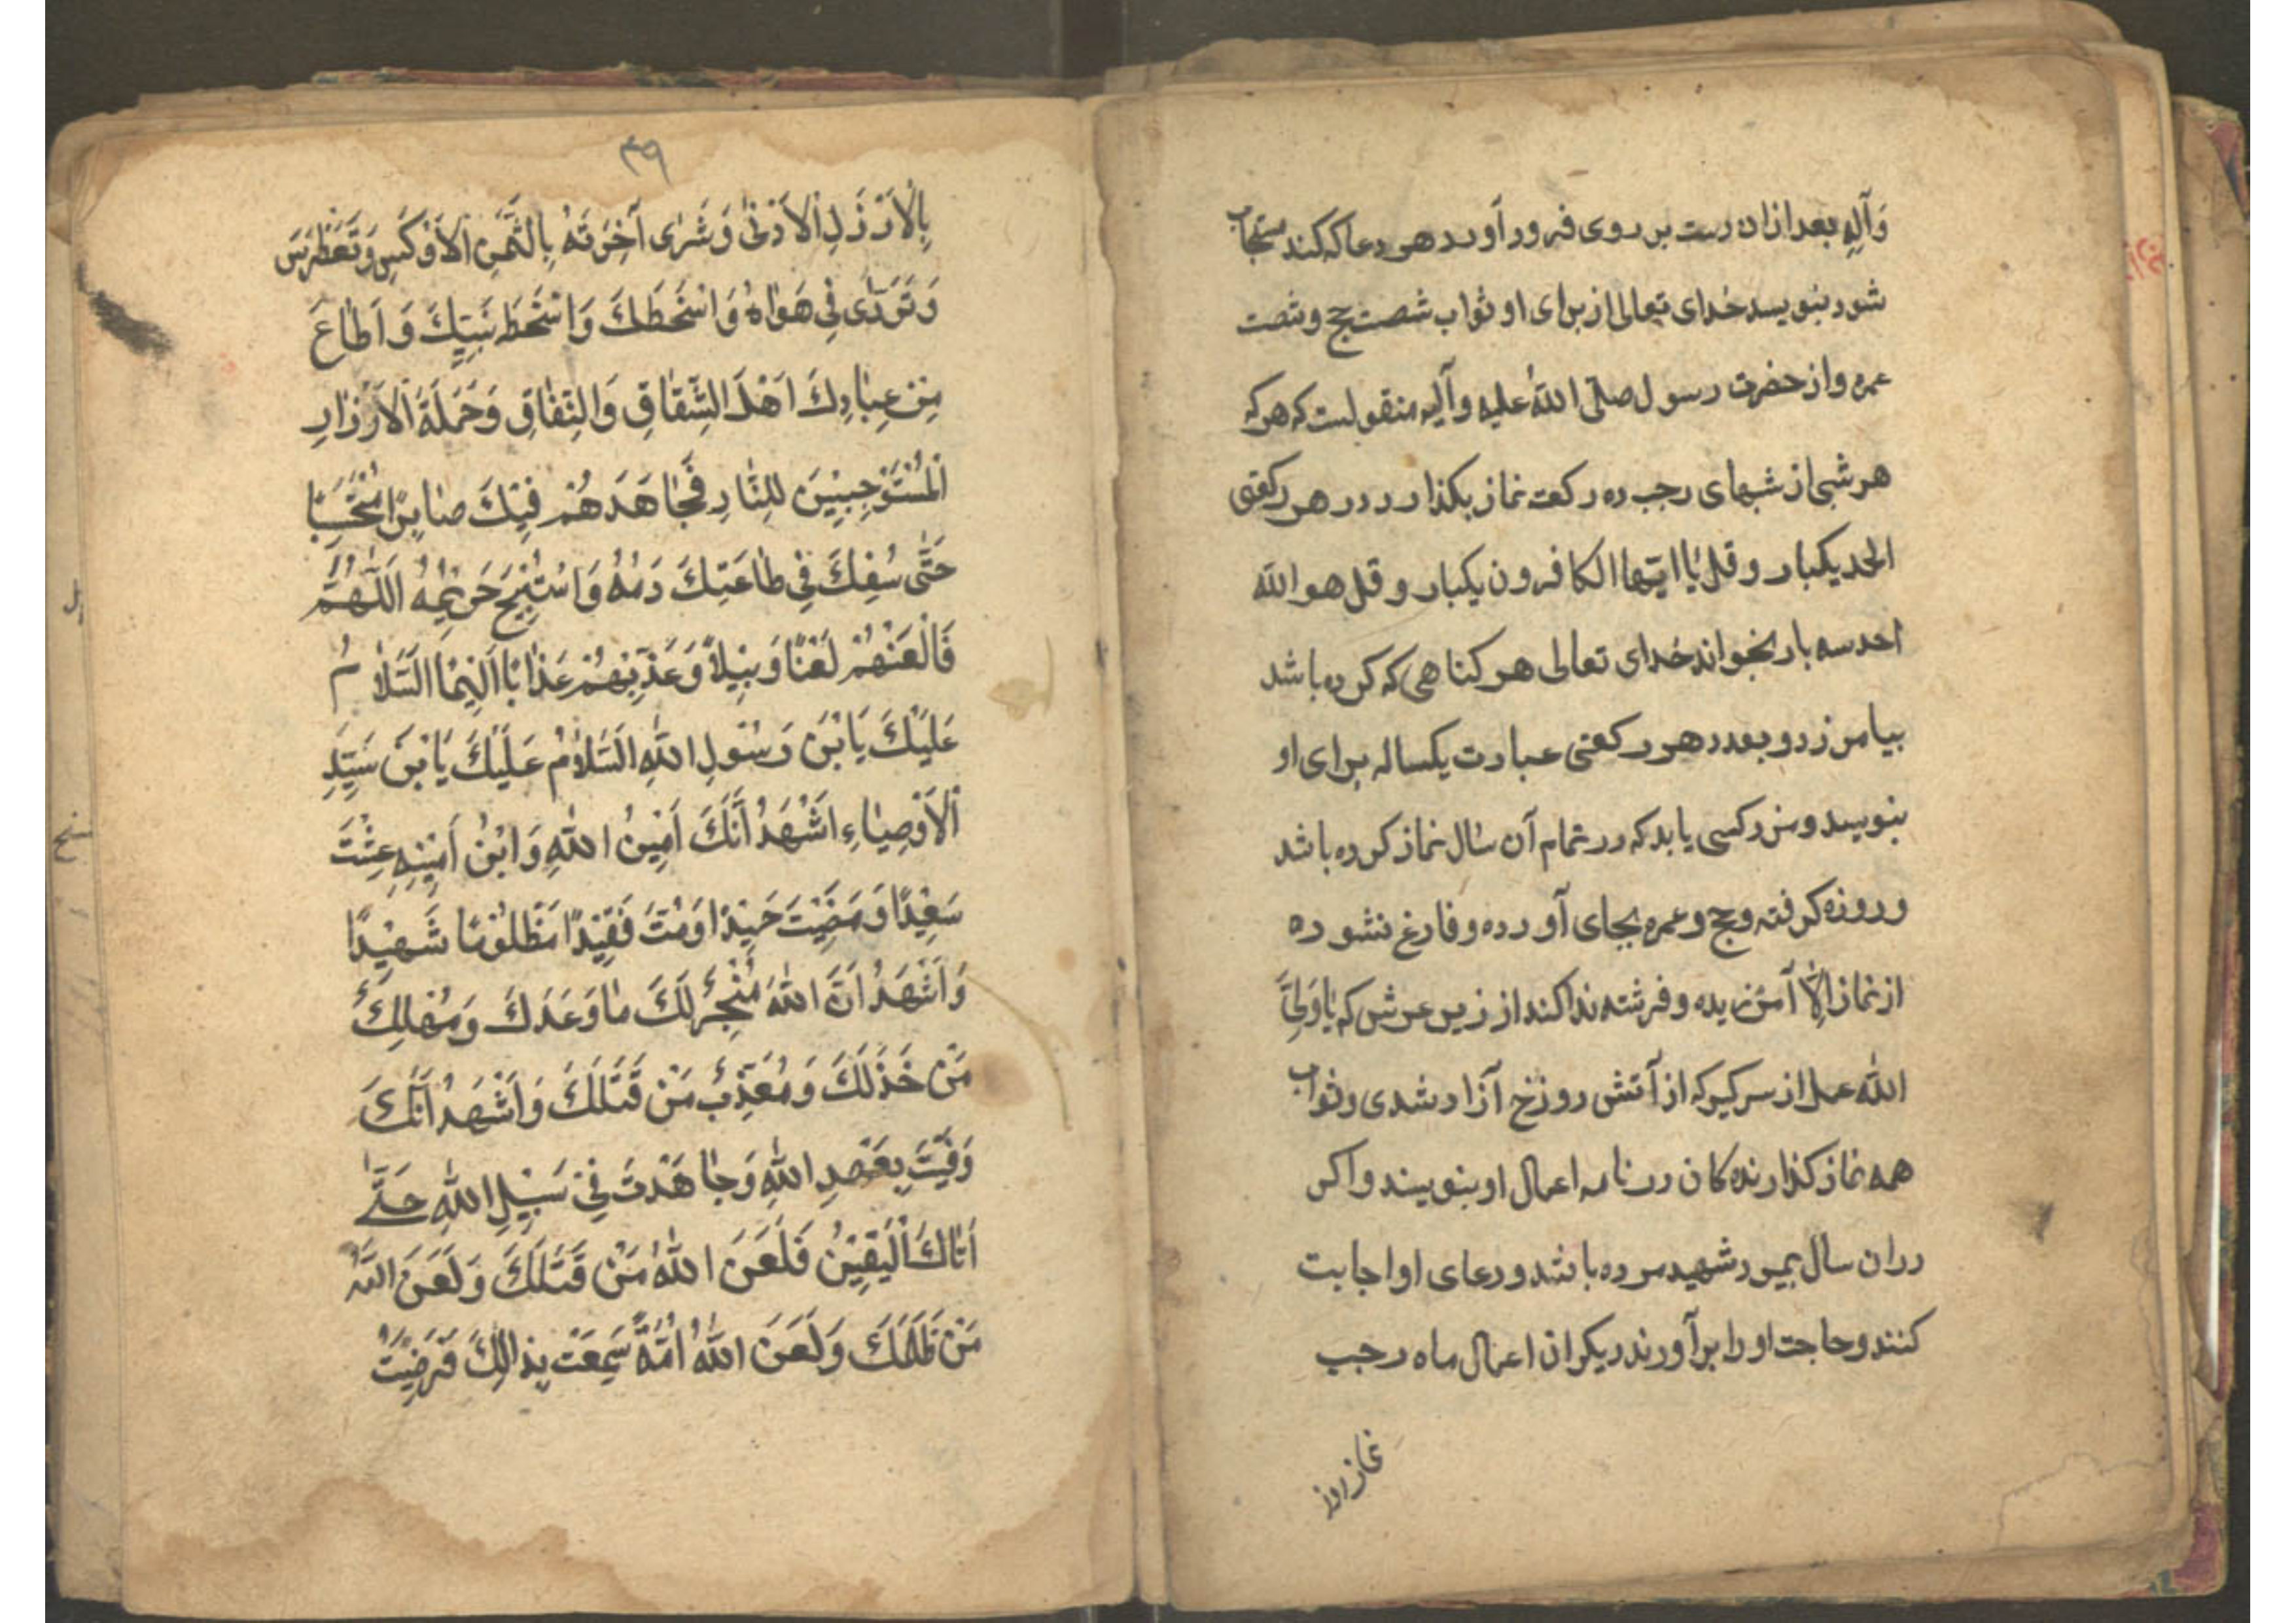 وَآلِهِ بعد ازان دست بر روی فرود آورد هر دعا که کند مستجاب
شود بنویسد خدای تعالی از برای او ثواب شصت حج و شصت
عمره و از حضرت رسول صلّی اللّه علیه وآله منقولست که هرکه
هر شبی از شبهای رجب ده رکعت نماز بکذارد در هر رکعتی
الحمد یکبار و قل یا ایّها الکافرون یکبار و قل هو اللّه
احد سه بار بخواند خدای تعالی هر کناهی که کرده باشد
بیامرزد و بعدد هر رکعتی عبادت یکساله برای او
بنویسد و مزد کسی یابد که در تمام آن سال نماز کرده باشد
و روزه کرفته و حج و عمره بجای آورده و فارغ نشود ده
از نماز الّا آمرزیده و فرشته ندا کند از زیر عرش که یا وَلِیَّ
اللّه عمل از سر کیر که از آتش دوزخ آزاد شدی و ثواب
همه نماز کذارنده کان در نامه اعمال او بنویسند و اکر
در ان سال بمیرد شهید مرده باشد و دعای او اجابت
کنند و حاجت او را برآورند دیکر از اعمال ماه رجب
نماز روز
۳۹
بِالْاَرْذَلِ الْاَدْنیٰ وَشَریٰ آخِرَتَهُ بِالثَّمَنِ الْاَوْکَسِ وَتَغَطْرَسَ
وَتَرَدّیٰ فِی هَوٰاهُ وَاَسْخَطَكَ وَاَسْخَطَ نَبِیِّكَ وَاَطٰاعَ
مِنْ عِبٰادِكَ اَهْلَ الشِّقٰاقِ وَالنِّفٰاقِ وَحَمَلَةَ الْاَوْزٰارِ
الْمُسْتَوْجِبِیْنَ لِلنّٰارِ فَجٰاهَدَهُمْ فِیْكَ صٰابِرًا مُحْتَسِبًا
حَتّٰی سُفِكَ فِی طٰاعَتِكَ دَمُهُ وَاسْتُبِیْحَ حَرِیْمُهُ اَللّٰهُمَّ
فَالْعَنْهُمْ لَعْنًا وَبِیْلًا وَعَذِّبْهُمْ عَذٰابًا اَلِیْمًا اَلسَّلٰامُ
عَلَیْكَ یَا بْنَ رَسُوْلِ اللّٰهِ اَلسَّلٰامُ عَلَیْكَ یَا بْنَ سَیِّدِ
الْاَوْصِیٰاءِ اَشْهَدُ اَنَّكَ اَمِیْنُ اللّٰهِ وَابْنُ اَمِیْنِهِ عِشْتَ
سَعِیْدًا وَمَضَیْتَ حَمِیْدًا وَمُتَّ فَقِیْدًا مَظْلُوْمًا شَهِیْدًا
وَاَشْهَدُ اَنَّ اللّٰهَ مُنْجِزٌ لَكَ مٰا وَعَدَكَ وَمُهْلِكٌ
مَنْ خَذَلَكَ وَمُعَذِّبٌ مَنْ قَتَلَكَ وَاَشْهَدُ اَنَّكَ
وَفَیْتَ بِعَهْدِ اللّٰهِ وَجٰاهَدْتَ فِیْ سَبِیْلِ اللّٰهِ حَتّٰی
اَتٰاكَ الْیَقِیْنُ فَلَعَنَ اللّٰهُ مَنْ قَتَلَكَ وَلَعَنَ اللّٰهُ
مَنْ ظَلَمَكَ وَلَعَنَ اللّٰهُ اُمَّةً سَمِعَتْ بِذٰالِكَ فَرَضِیَتْ